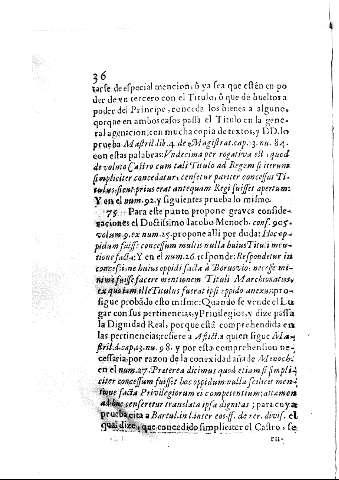 36
tarse de especial mencion, ò ya sea que estèn en po
der de vn tercero con el Titulo, ò que de bueltos a
poder del Principe, conceda los bienes a alguno,
porque en ambos casos passa el Titulo en la gene
ral agenacion; con mucha copia de textos, y DD. lo
prueba Mastril lib. 4. de Magistrat. cap. 3. nu. 84.
con estas palabras: Vndecima per rogativa est, quod
devoluto Castro cum tali Titulo ad Regem si iterum
simpliciter concedatur, censetur pariter concessus Ti-
tulus, sicut prius erat antequam Regi fuisset apertum:
Y en el num. 92. y siguientes prueba lo mismo.
75. Para este punto propone graves conside-
raciones el Doctissimo Iacobo Menoch. conf. 905.
volum 9. ex num. 25. propone alli por duda: Hoc op-
pidum fuisse concessum multis nulla huius Tituli men-
tione facta: Y en el num. 26. responde: Respondetur in
concessione huius oppidi facta à
nime fuisse facere mentionem Tituli Marchionatus,
ex quo tam ille Titulus fuerat ipsi oppido anexus; pro-
sigue probãdo esto mismo: Quando se vende el Lu
gar con sus pertinencias, y Privilegios, y dize passa
la Dignidad Real, porque està comprehendida en
las pertinencias, refiere a Aflicta quien sigue Ma-
stril. d. cap. 3. nu. 98. y por esta comprehension ne-
cessaria por razon de la conexidad añade Menoch.
en el num. 27. Præterea dicimus quod etiam si simpli-
citer concessum fuisset hoc oppidum nulla scilicet men-
tione facta Privilegiorum ei competentium; attamen
adhuc censeretur translata ipsa dignitas; para cuya
prueba cita a Bartul. in l. inter eos. ff. de rer. divis. el
qual dize, que concedido simpliciter el Castro, se
en-